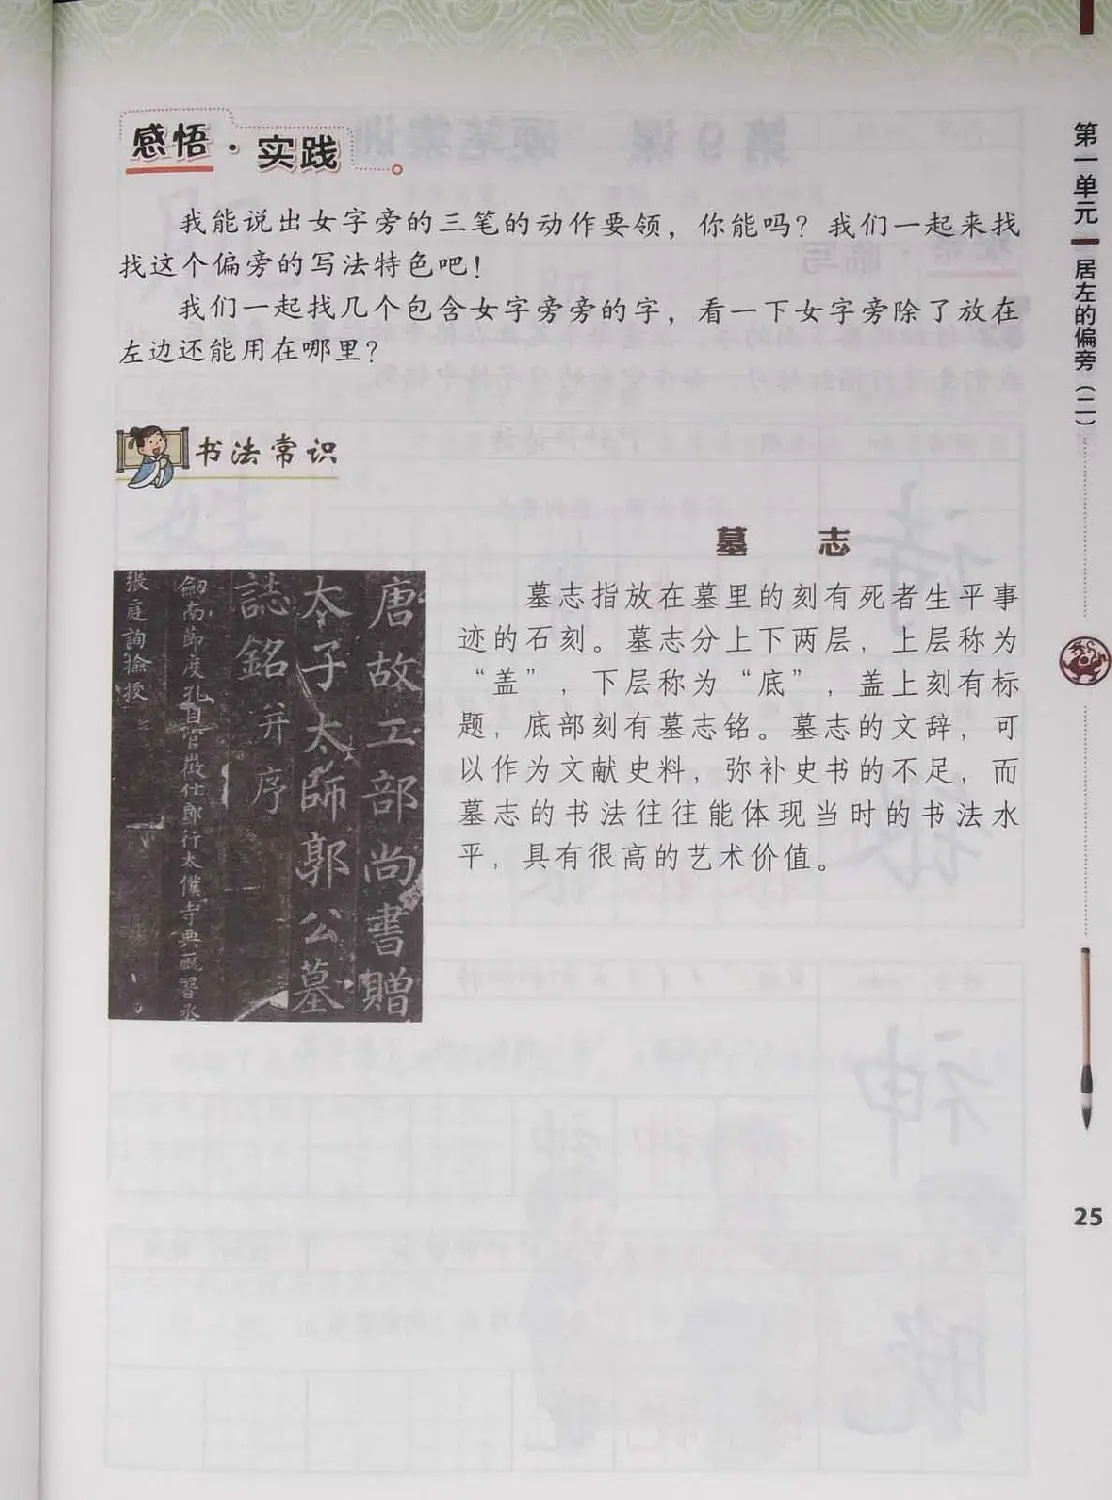 感悟·实践
我能说出女字旁的三笔的动作要领，你能吗？我们一起来找
找这个偏旁的写法特色吧！
我们一起找几个包含女字旁旁的字，看一下女字旁除了放在
左边还能用在哪里？
书法常识
墓 志
墓志指放在墓里的刻有死者生平事
迹的石刻。墓志分上下两层，上层称为
“盖”，下层称为“底”，盖上刻有标
题，底部刻有墓志铭。墓志的文辞，可
以作为文献史料，弥补史书的不足，而
墓志的书法往往能体现当时的书法水
平，具有很高的艺术价值。
唐故工部尚書贈
太子太師郭公墓
誌銘并序
劒南節度孔目官徵仕郎行太僕寺典廐署丞
張庭詢撿挍
第一单元
居左的偏旁（二）
25